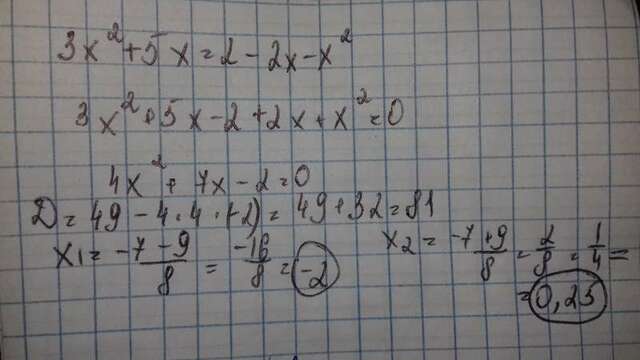 3x² + 5x = 2 - 2x - x²
3x² + 5x - 2 + 2x + x² = 0
4x² + 7x - 2 = 0
D = 49 - 4·4·(-2) = 49 + 32 = 81
x1 = -7-9/8 = -16/8 = -2 x2 = -7+9/8 = 2/8 = 1/4 =
= 0,25